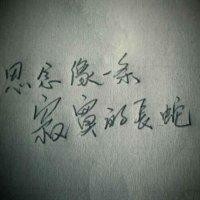 思念像一条
寂寞的長蛇